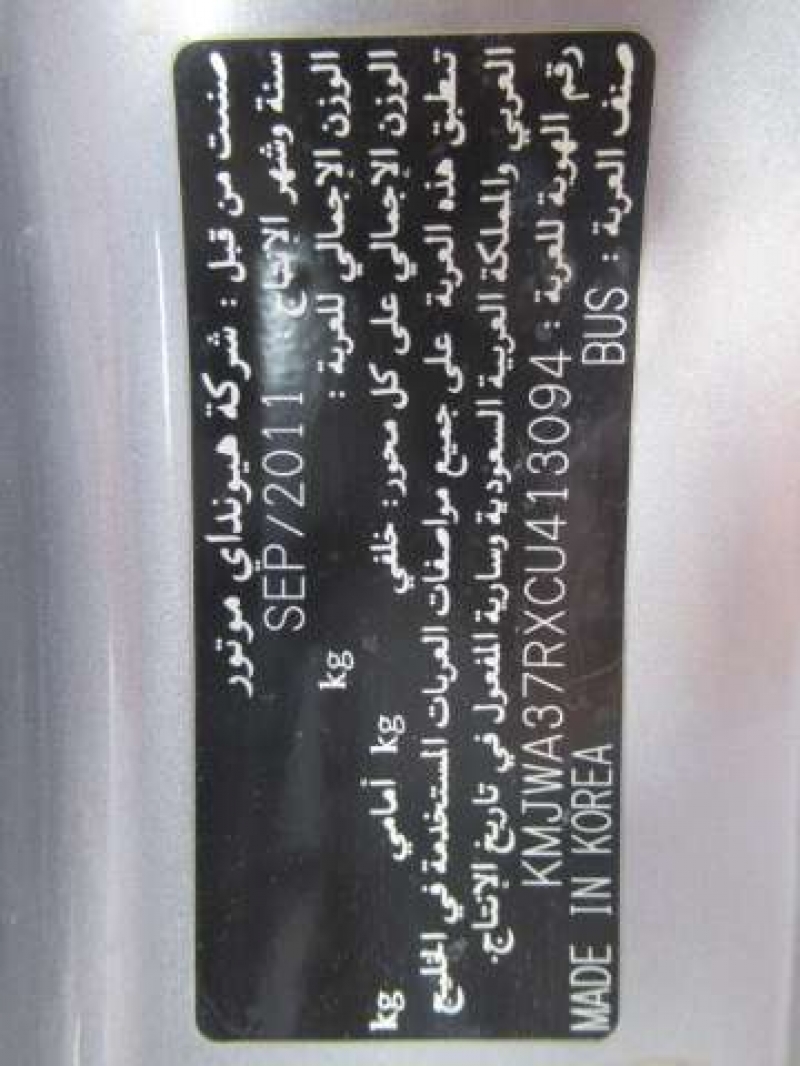 صنعت من قبل : شركة هيونداي موتور
سنة وشهر الإنتاج : SEP/2011
الوزن الإجمالي للعربة : kg
الوزن الإجمالي على كل محور : خلفي kg أمامي kg
تنطبق هذه العربة على جميع مواصفات العربات المستخدمة في الخليج
العربي والمملكة العربية السعودية وسارية المفعول في تاريخ الإنتاج.
رقم الهوية للعربة : KMJWA37RXCU413094
صنف العربة : BUS MADE IN KOREA